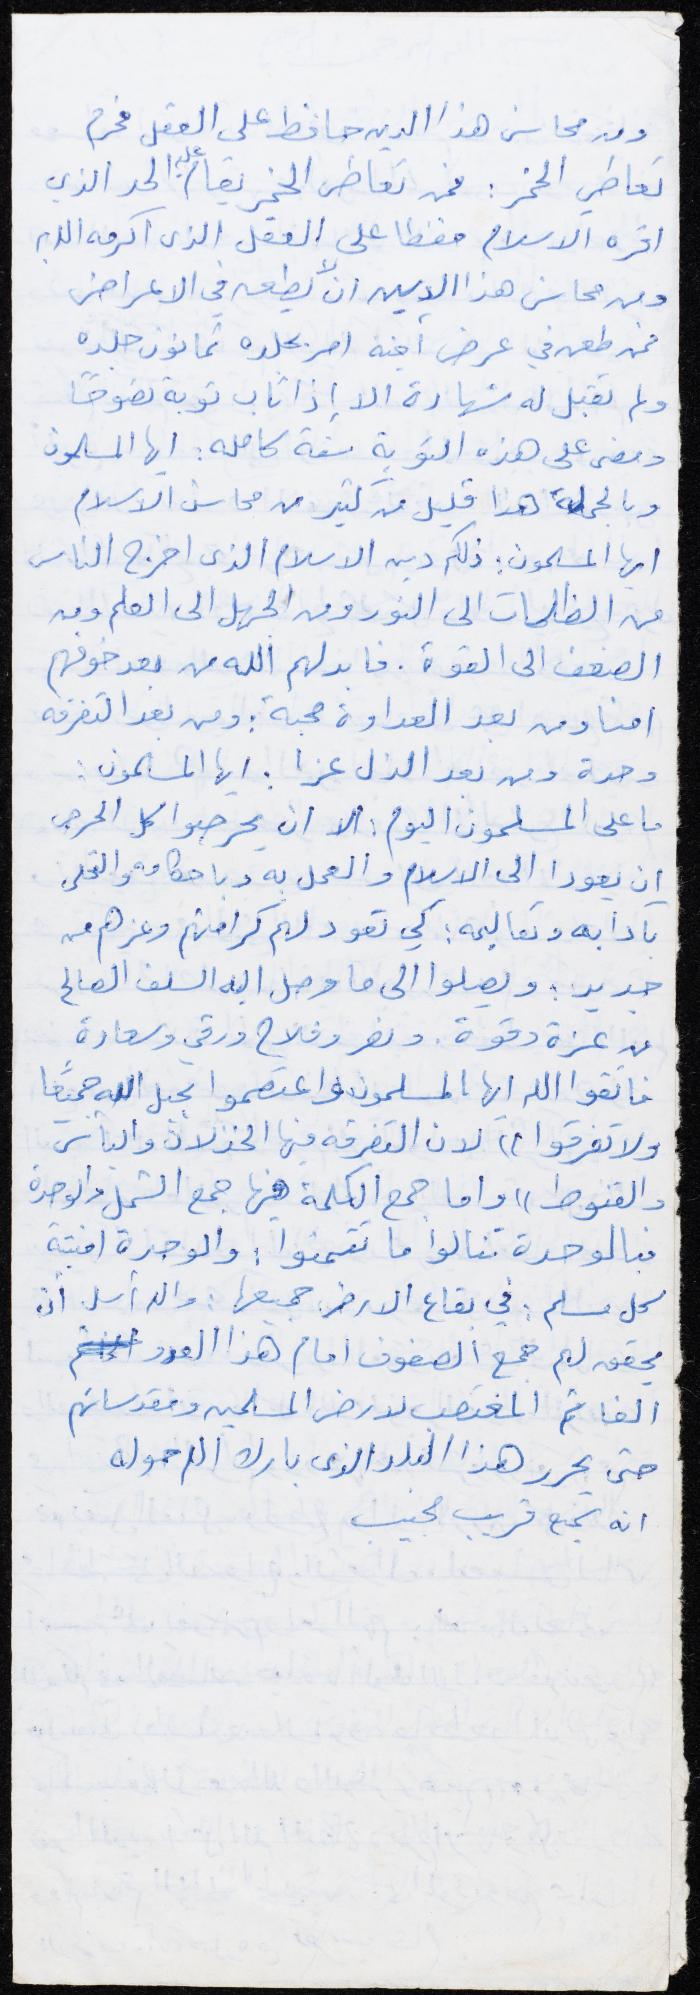 ومن محاسن هذا الدين حافظ على العقل فحرم
تعاطي الخمر : فمن تعاطى الخمر يقام عليه الحد الذي
اقره الاسلام حفظا على العقل الذي اكرمه الله
ومن محاسن هذا الدين ان لا يطعن في الاعراض
فمن طعن في عرض أخيه امر بجلده ثمانون جلده
ولم تقبل له شهادة الا إذا تاب توبة نصوحًا
ومضى على هذه التوبة سنة كامله : ايها المسلمون
وبالجملة هذا قليل من كثير من محاسن الاسلام
ايها المسلمون : ذلكم دين الاسلام الذي اخرج الناس
من الظلمات الى النور ومن الجهل الى العلم ومن
الضعف الى القوة . فابدلهم الله من بعد خوفهم
امنا ومن بعد العداوة محبة : ومن بعد التفرقه
وحدة ومن بعد الذل عزا : ايها المسلمون :
ما على المسلمون اليوم : الا ان يحرصوا كل الحرص
ان يعودا الى الاسلام والعمل به وباحكامه والتحلي
بآدابه وتعاليمه : كي تعود لهم كرامتهم وعزهم من
جديد : ويصلوا الى ما وصل اليه السلف الصالح
من عزة وقوة . ونصر وفلاح ورقي وسعادة
فاتقوا الله ايها المسلمون واعتصموا بحبل الله جميعًا
ولا تفرقوا )) لان التفرقه فيها الخذلان واليأس
والقنوط )) واما جمع الكلمة فيها جمع الشمل والوحدة
فبالوحدة تنالوا ما تتمنوا : والوحدة امنية
كل مسلم : في بقاع الارض جميعها : والله أسل أن
يحقق لهم جمع الصفوف امام هذا العدو
الغاشم المغتصب لارض المسلمين ومقدساتهم
حتى يحرر هذا البلد الذي بارك الله حوله
انه سميع قريب مجيب